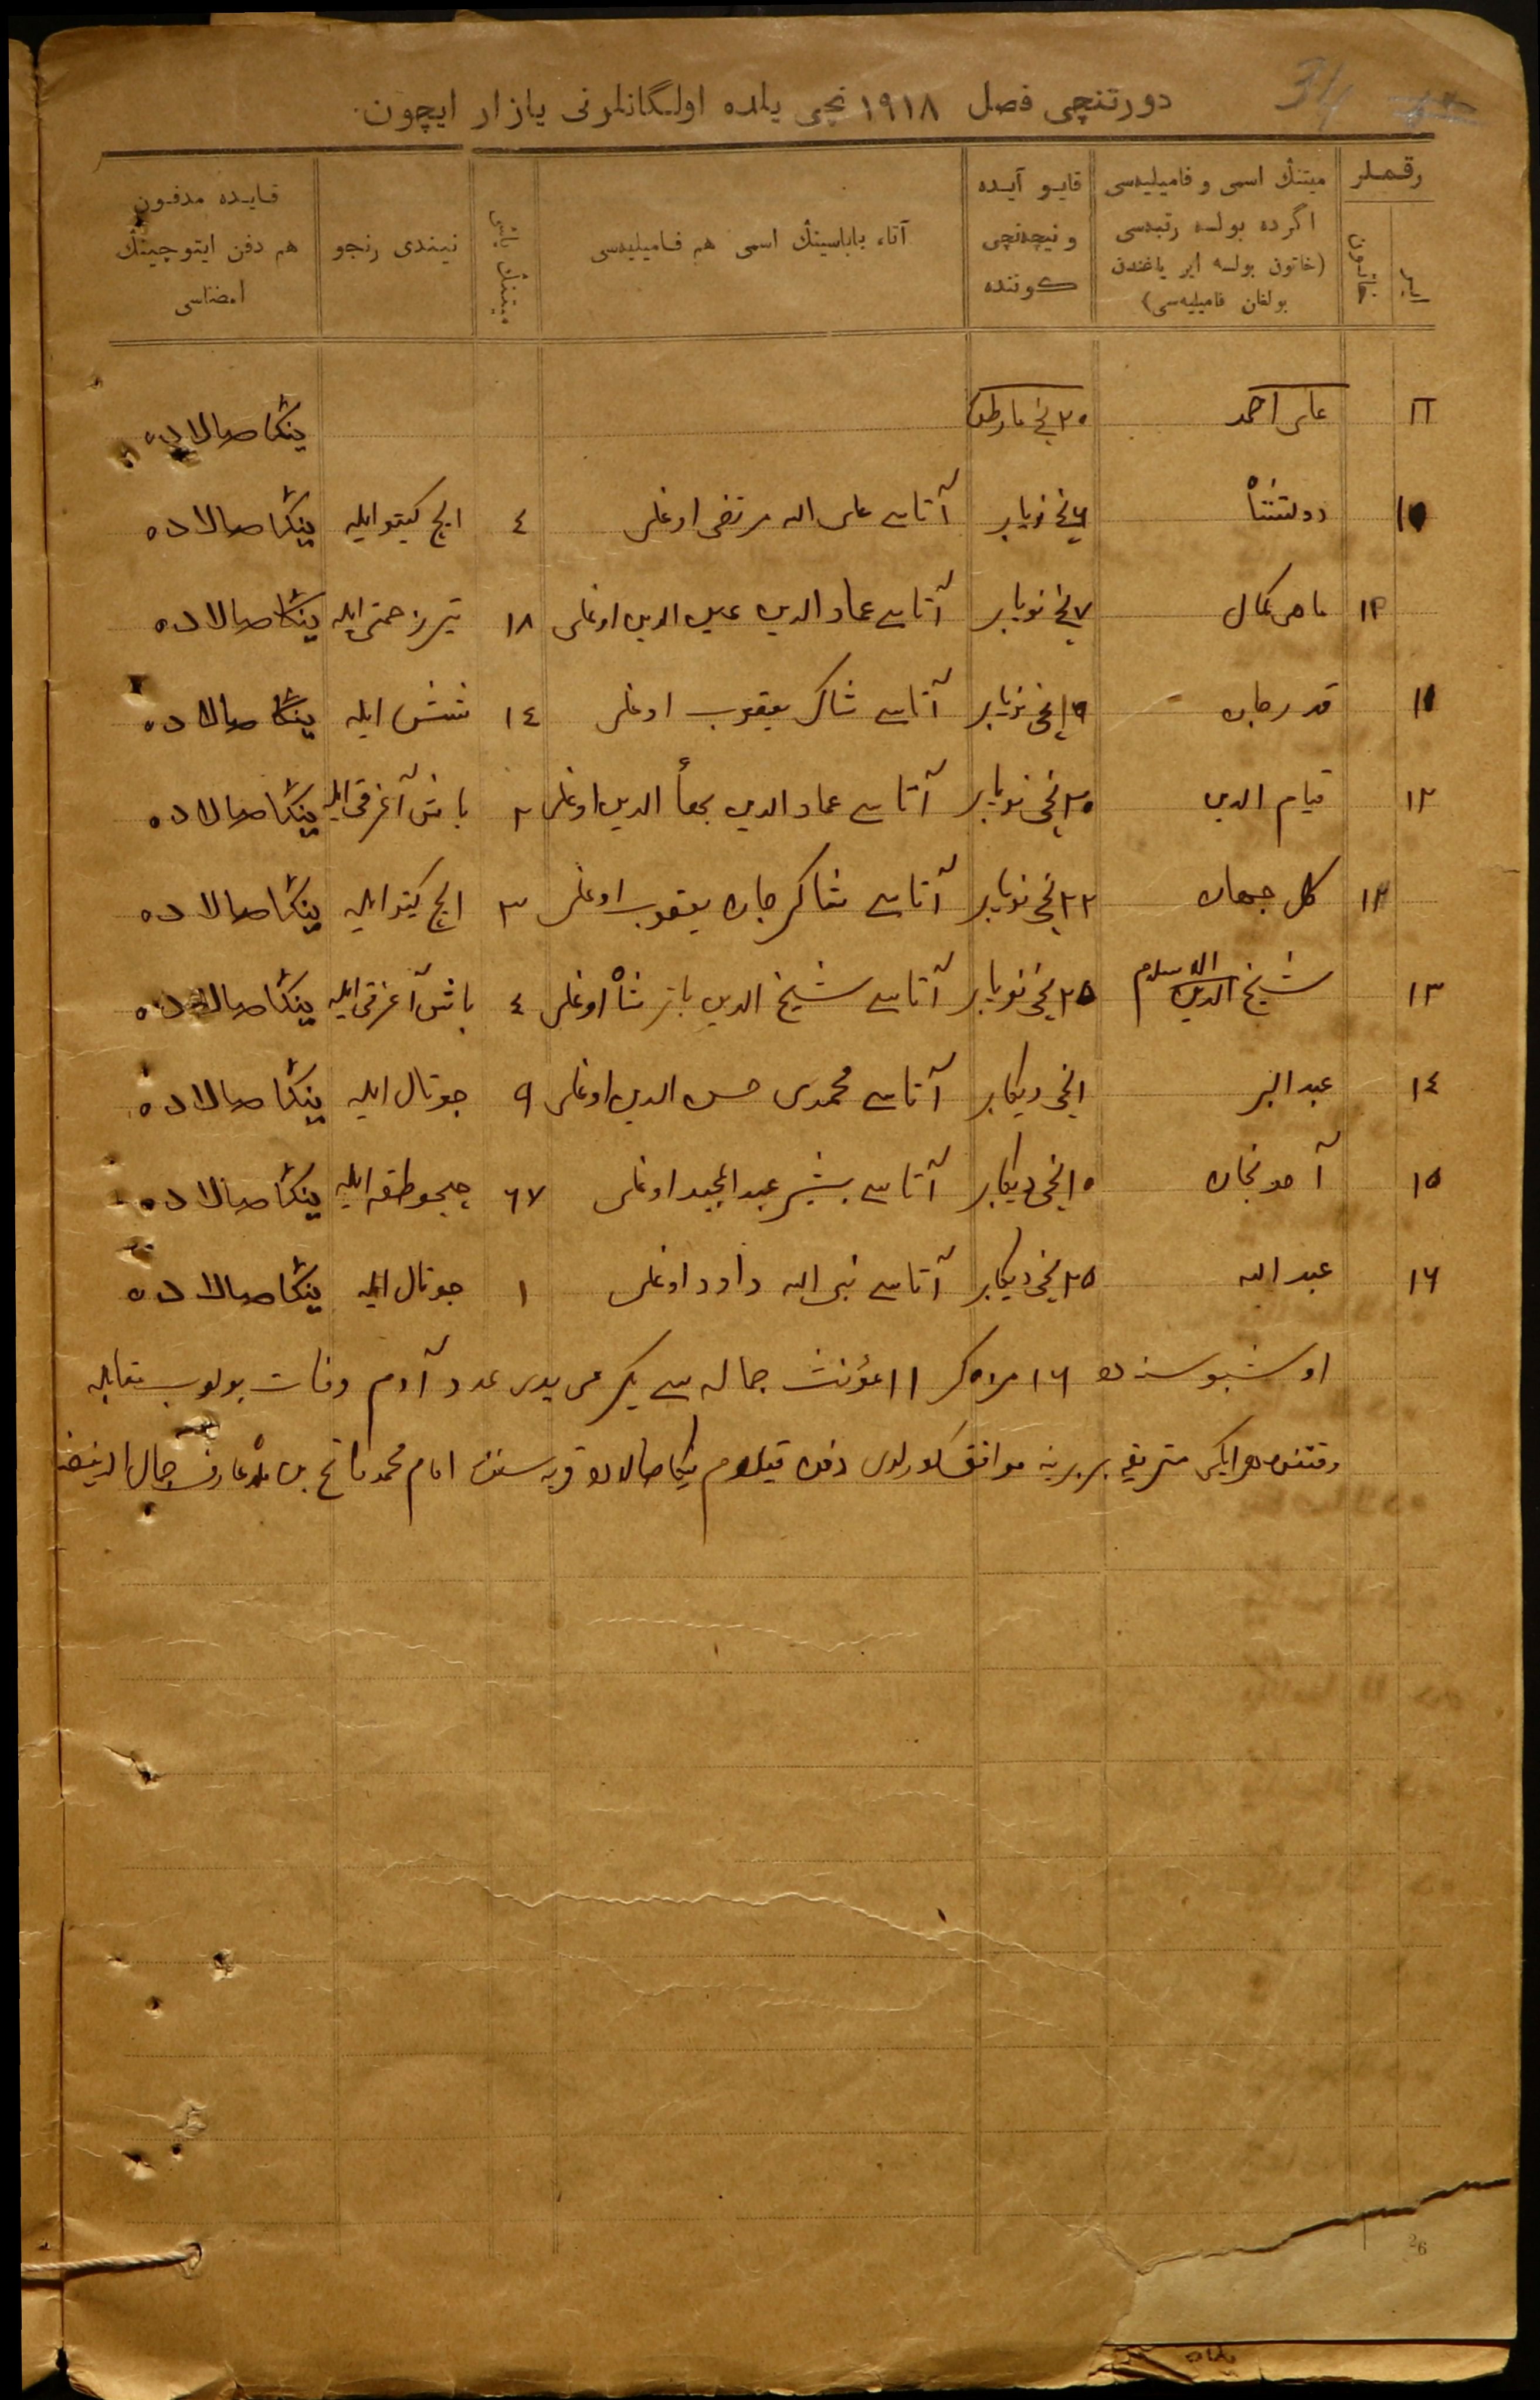 34
دورتنچی فصل ١٩١٨ نچی یلده اولگانلرنی یازار ایچون.
رقملر
ایر
خاتون
میتنڭ اسمی و فامیلیه‌سی اگرده بولسه رتبه‌سی (خاتون بولسه ایر یاغندن بولغان فامیلیه‌سی)
قایو آیده و نیچه‌نچی كوننده
آتا، باباسینڭ اسمی هم فامیلیه‌سی
میتنڭ یاشی
نیندی رنجو
قایده مدفون هم دفن ایتوچینڭ امضاسی
علی احمد ینگا صالاده
دولتشاْ نچی نویابر آتاسی علی الله مرتضی اوغلی ٤ ایچ كیتو ایله ینگا صالاده
١٢ ماهی كمال ٧ نچی نویابر آتاسی عماد الدین الدین اوغلی ١٨ ایله ینگا صالاده
قدرجان نچی نویابر آتاسی شاكر یعقوب اوغلی ١٤ شش ایله ینگا صالاده
١٢ قیام الدین ٢٠ نچی نویابر آتاسی عماد الدین الدین اوغلی ٢ باش آغرقی ایله ینگا صالاده
١٣ كل جهان ٢٢ نچی نویابر آتاسی شاكرجان یعقوب اوغلی ٣ ایچ كیتو ایله ینگا صالاده
١٣ شیخ الاسلام الدین ٢٥ نچی نویابر آتاسی شیخ الدین اوغلی ٤ باش آغرقی ایله ینگا صالاده
١٤ عبد البر انچی دیكابر آتاسی محمدی حسن الدین اوغلی ٩ جوتال ایله ینگا صالاده
١٥ آخونجان ١٠ نچی دیكابر آتاسی بشیر عبد المجید اوغلی ٦٧ ایله ینگا صالاده
١٦ عبد الله ٢٥ نچی دیكابر آتاسی نبی الله داود اوغلی ١ جوتال ایله ینگا صالاده
اوشبو سنه‌ده ١٦ مذكر ١١ مؤنث جماله سی یكرمی یدی عدد آدم وفات بولوب مقابله
وقتنده هر ایكی بر برینه موافق كورلدی دفن قیلدم ینگا صالاده قریه سننڭ امام محمد فاتح بن جمال الدین
26